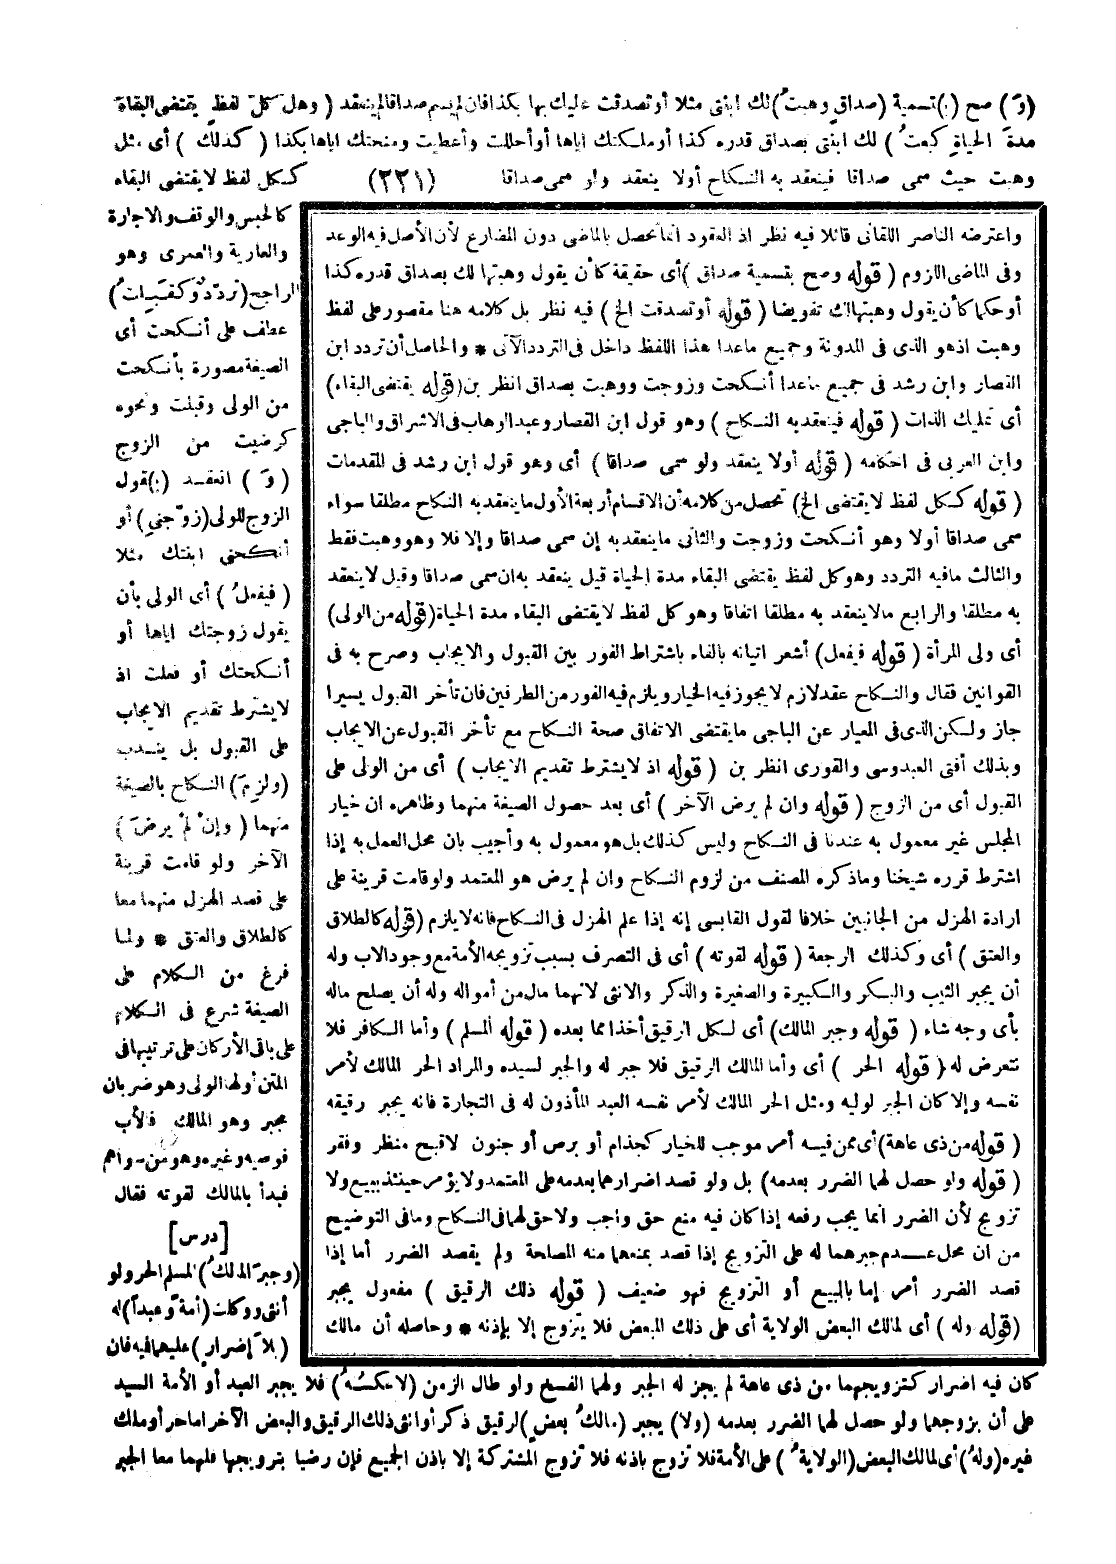 (وَ) صح (ب) تسمية (صداق وهبتُ) لك ابنتى مثلا أو تصدقت عليك بها بكذا فان لم يسم صداقا لم ينعقد (وهل كلّ لفظ يقتضى البقاءَ
مدةَ الحياةِ كبعتُ) لك ابنتى بصداق قدره كذا أو ملكتك اياها أو أحللت وأعطيت ومنحتك اياها بكذا (كذلك) أى مثل
وهبت حيث سمى صداقا فينعقد به النكاح أولا ينعقد ولو سمى صداقا (٢٢١) ككل لفظ لا يقتضى البقاء
كالحبس والوقف والاجارة
والعارية والعمرى وهو
الراجح (تردّد وكقبلتُ)
عطف على أنكحت أى
الصيغة مصورة بأنكحت
من الولى وقبلت ونحوه
كرضيت من الزوج
(وَ) انعقد (ب) قول
الزوج للولى (زوّجني) أو
أنكحني ابنتك مثلا
(فيفعلُ) أى الولى بأن
يقول زوجتك اياها أو
أنكحتك أو فعلت اذ
لا يشترط تقديم الايجاب
على القبول بل يندب
(ولزمَ) النكاح بالصيغة
منهما (وإنْ لمْ يرضَ)
الآخر ولو قامت قرينة
على قصد الهزل منهما معا
كالطلاق والعتق * ولما
فرغ من الكلام على
الصيغة شرع فى الكلام
على باقى الأركان على ترتيبها فى
المتن أولها الولى وهو ضربان
مجبر وهو المالك فالأب
فوصيه وغيره وهو من سواهم
فبدأ بالمالك لقوته فقال
[درس]
(وجبرَ المالكُ) المسلم الحر ولو
أنثى ووكلت (أمةً وعبداً) له
(بلاَ إضرارٍ) عليهما فيه فان
واعترضه الناصر اللقانى قائلا فيه نظر اذ العقود انما تحصل بالماضى دون المضارع لأن الأصل فيه الوعد
وفى الماضى اللزوم (قوله وصح بتسمية صداق) أى حقيقة كأن يقول وهبتها لك بصداق قدره كذا
أو حكما كأن يقول وهبتها لك تفويضا (قوله أو تصدقت الخ) فيه نظر بل كلامه هنا مقصور على لفظ
وهبت اذهو الذى فى المدونة وجميع ماعدا هذا اللفظ داخل فى التردد الآتى * والحاصل أن تردد ابن
القصار وابن رشد فى جميع ماعدا أنكحت وزوجت ووهبت بصداق انظر بن (قوله يقتضى البقاء)
أى تمليك الذات (قوله فينعقد به النكاح) وهو قول ابن القصار وعبد الوهاب فى الاشراق والباجى
وابن العربى فى احكامه (قوله أولا ينعقد ولو سمى صداقا) أى وهو قول ابن رشد فى المقدمات
(قوله ككل لفظ لا يقتضى الخ) تحصل من كلامه أن الاقسام أربعة الأول ما ينعقد به النكاح مطلقا سواء
سمى صداقا أولا وهو أنكحت وزوجت والثانى ما ينعقد به إن سمى صداقا وإلا فلا وهو وهبت فقط
والثالث مافيه التردد وهو كل لفظ يقتضى البقاء مدة الحياة قيل ينعقد به ان سمى صداقا وقيل لا ينعقد
به مطلقا والرابع مالا ينعقد به مطلقا اتفاقا وهو كل لفظ لا يقتضى البقاء مدة الحياة (قوله من الولى)
أى ولى المرأة (قوله فيفعل) أشعر اتيانه بالفاء باشتراط الفور بين القبول والايجاب وصرح به فى
القوانين فقال والنكاح عقد لازم لا يجوز فيه الخيار ويلزم فيه الفور من الطرفين فان تأخر القبول يسيرا
جاز ولكن الذى فى المعيار عن الباجى ما يقتضى الاتفاق صحة النكاح مع تأخر القبول عن الايجاب
وبذلك أفتى العبدوسى والقورى انظر بن (قوله اذ لا يشترط تقديم الايجاب) أى من الولى على
القبول أى من الزوج (قوله وان لم يرض الآخر) أى بعد حصول الصيغة منهما وظاهره ان خيار
المجلس غير معمول به عندنا فى النكاح وليس كذلك بل هو معمول به وأجيب بان محل العمل به إذا
اشترط قرره شيخنا وماذكره المصنف من لزوم النكاح وان لم يرض هو المعتمد ولو قامت قرينة على
ارادة الهزل من الجانبين خلافا لقول القابسى إنه إذا علم الهزل فى النكاح فانه لا يلزم (قوله كالطلاق
والعتق) أى وكذلك الرجعة (قوله لقوته) أى فى التصرف بسبب تزويجه الأمة مع وجود الاب وله
أن يجبر الثيب والبكر والكبيرة والصغيرة والذكر والانثى لانهما مال من أمواله وله أن يصلح ماله
بأى وجه شاء (قوله وجبر المالك) أى لكل الرقيق أخذا مما بعده (قوله المسلم) وأما الكافر فلا
نتعرض له (قوله الحر) أى وأما المالك الرقيق فلا جبر له والجبر لسيده والمراد الحر المالك لأمر
نفسه وإلا كان الجبر لوليه ومثل الحر المالك لأمر نفسه العبد المأذون له فى التجارة فانه يجبر رقيقه
(قوله من ذى عاهة) أى ممن فيه أمر موجب للخيار كجذام أو برص أو جنون لا قبح منظر وفقر
(قوله ولو حصل لهما الضرر بعدمه) بل ولو قصد اضرارهما بعدمه على المعتمد ولا يؤمر حينئذ ببيع ولا
تزويج لأن الضرر انما يجب رفعه إذا كان فيه منع حق واجب ولا حق لهما فى النكاح وما فى التوضيح
من ان محل عدم جبرهما له على التزويج إذا قصد بمنعهما منه المصلحة ولم يقصد الضرر أما إذا
قصد الضرر أمر إما بالبيع أو التزويج فهو ضعيف (قوله ذلك الرقيق) مفعول يجبر
(قوله وله) أى لمالك البعض الولاية أى على ذلك المبعض فلا يتزوج إلا بإذنه * وحاصله أن مالك
كان فيه اضرار كتزويجهما من ذى عاهة لم يجز له الجبر ولهما الفسخ ولو طال الزمن (لا عكسُهُ) فلا يجبر العبد أو الأمة السيد
على أن يزوجهما ولو حصل لهما الضرر بعدمه (ولا) يجبر (مالكُ بعضٍ) لرقيق ذكر أو انثى ذلك الرقيق والبعض الآخر اما حر أو ملك
غيره (ولهُ) أى لمالك البعض (الولايةُ) على الأمة فلا تزوج باذنه فلا تزوج المشتركة إلا باذن الجميع فإن رضيا بتزويجها فلهما معا الجبر